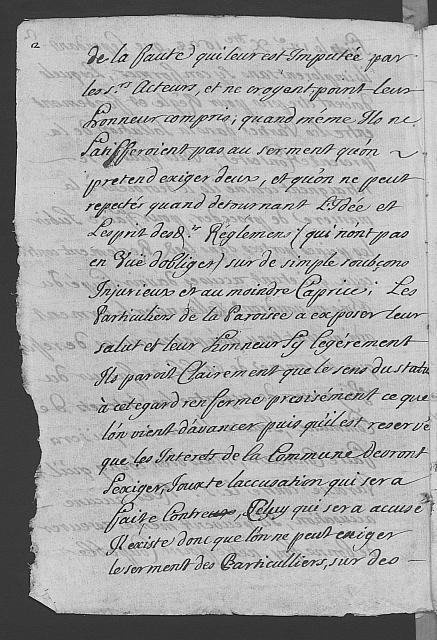 2
de la faute qui leur est Imputée par
les s.rs Acteurs, et ne croyent point leur
honneur compris; quand même Ils ne
satisferoient pas au serment qu'on
pretend exiger deux, et qu'on ne peut
repectés quand detournant L'Idée et
L'esprit des d.ts Reglemens (qui n'ont pas
en Vüe d'obliger) sur de simple soubçons
Injurieux et au moindre Caprice; Les
Particuliers de la Paroisse a exposer leur
salut et leur honneur sy légérement
Ils paroit Clairement que le sens du statu
à cet egard renferme precisément ce que
lòn vient d'avancer puis qu'il est reservé
que les Interets de la Commune devront
l'exiger, Jouxte laccusation qui sera
faite Contre Celuy qui sera accusé
Il existe donc que lòn ne peut exiger
le serment des Particulliers, sur des